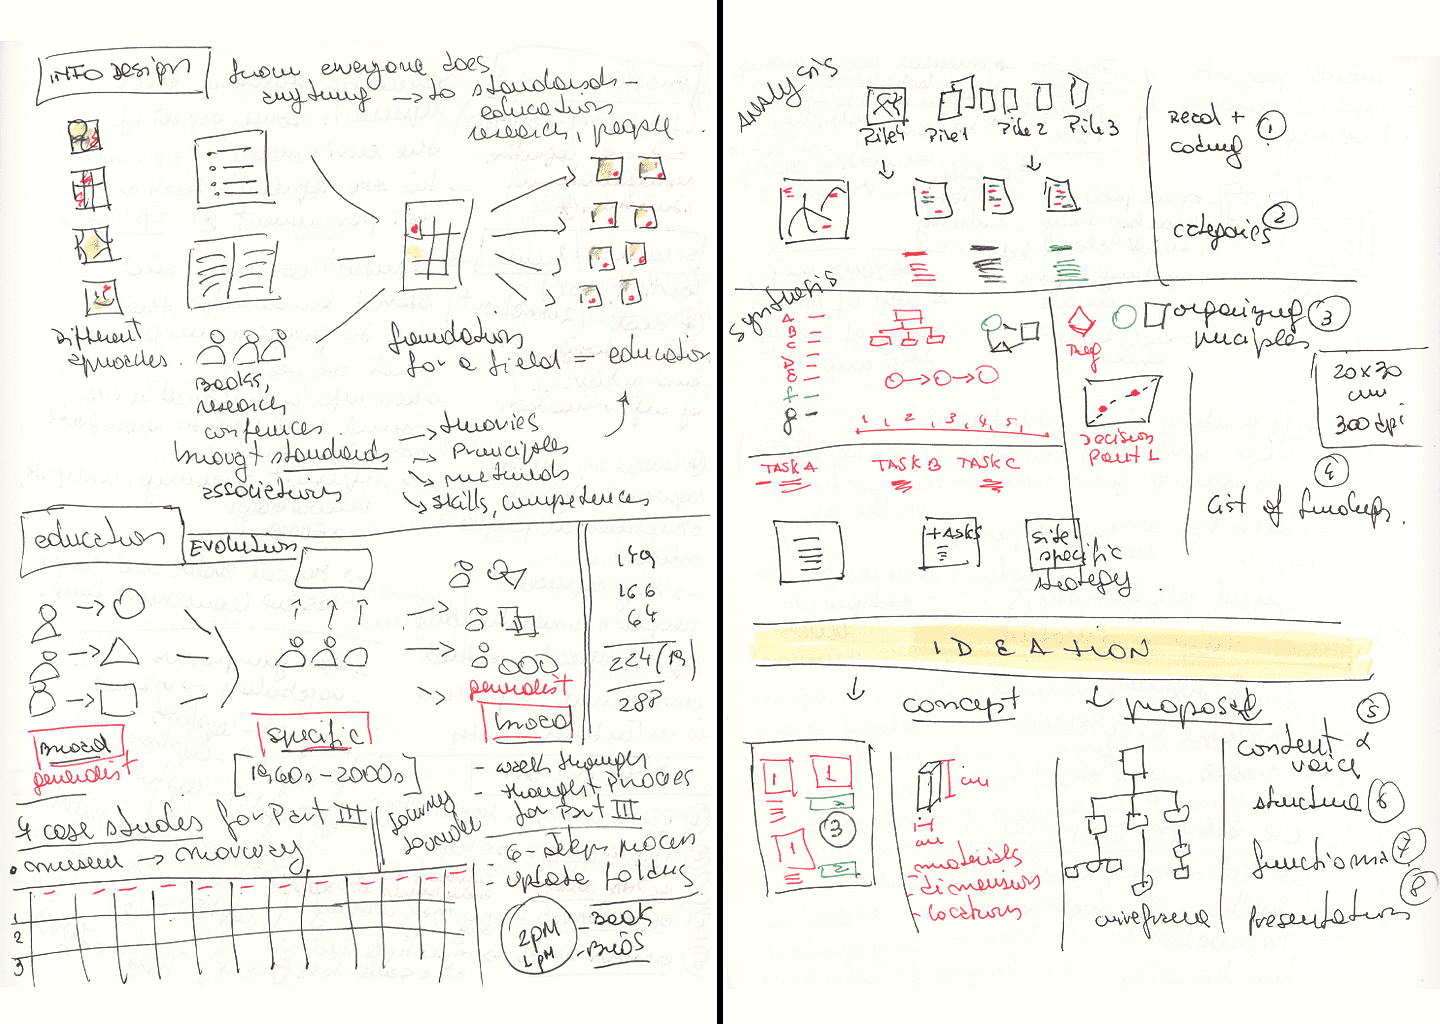 INFO DESIGN
from everyone does
anything → to standards -
education
research, people.
Different
approaches.
Books,
research
conferences
brought standards
associations
foundations
for a field = education
→ theories
→ Principles
→ methods
→ skills, competences
education
EVOLUTION
149
166
64
224 (19)
288
broad
generalist
specific
[1960s - 2000s]
generalist
broad
- work through
- thought process
for Part III
4 case studies for Part III
• museum →
6-steps process
- update folders
1
2
3
2PM
1PM
- BOOK
- BIOS
Analysis
Pile 4
Pile 1
Pile 2
Pile 3
Read +
coding
1
categories
2
Synthesis
A
B
C
D
E
f
g
1, 2, 3, 4, 5,
organizing
principles
3
Decision
Point 1
20x30
cm
300 dpi
TASK A
TASK B
TASK C
4
List of findings.
+ASKS
site
specific
strategy
IDEATION
concept
proposal
5
content &
voice
structure 6
7
presentation
8
1
1
2
3
1
2
cm
cm
materials
- dimensions
- locations
wireframe